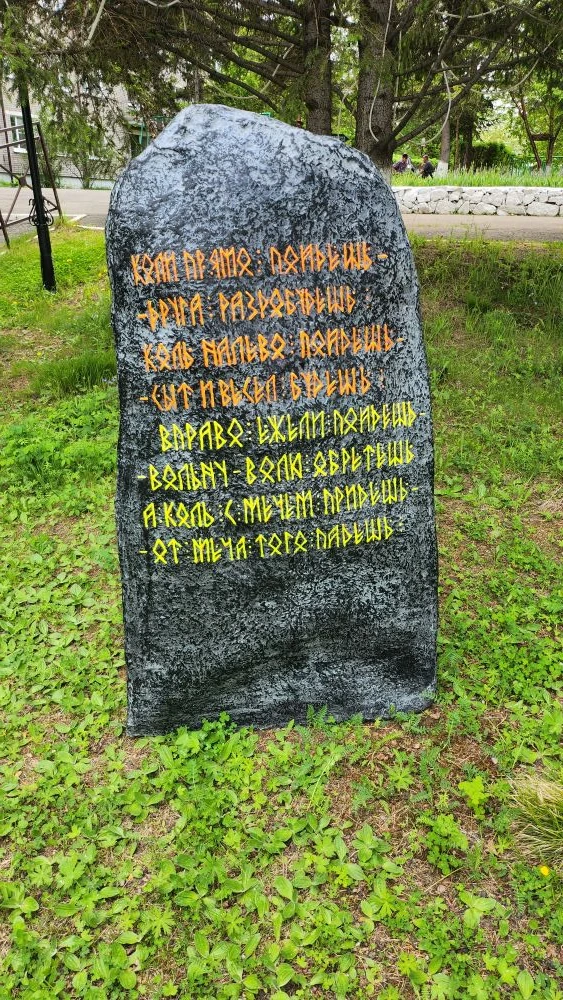 КОЛИ ПРЯМО : ПОИДЕШЬ -
- ДРУГА : РАЗДОБУДЕШЬ :
КОЛЬ НАЛЬВО : ПОИДЕШЬ -
- СЫТ И ВЕСЕЛ : БУДЕШЬ :
ВПРАВО : ЕЖЕЛИ : ПОИДЕШЬ -
- ВОЛЬНУ - ВОЛЮ : ОБРЕТЕШЬ
А : КОЛЬ : С : МЕЧЕМ : ПРИДЕШЬ -
- ОТ : МЕЧА : ТОГО : ПАДЕШЬ :